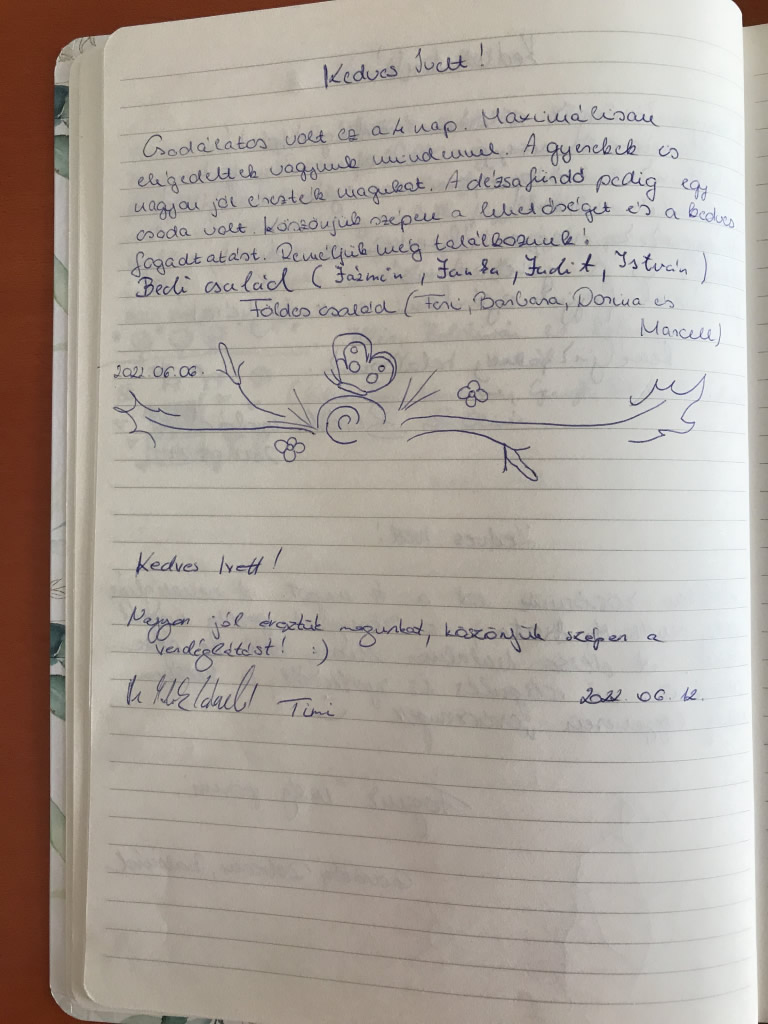 Kedves Ivett!
Csodálatos volt ez a 4 nap. Maximálisan
elégedettek vagyunk mindennel. A gyerekek is
nagyon jól érezték magukat. A dézsafürdő pedig egy
csoda volt. Köszönjük szépen a lehetőséget és a kedves
fogadtatást. Reméljük még találkozunk!
Bedi család (Jázmin, Janka, Judit, István)
Földes család (Feri, Barbara, Dorina és
Marcell)
2022.06.06.
Kedves Ivett!
Nagyon jól éreztük magunkat, köszönjük szépen a
vendéglátást! :)
Timi
2022.06.12.